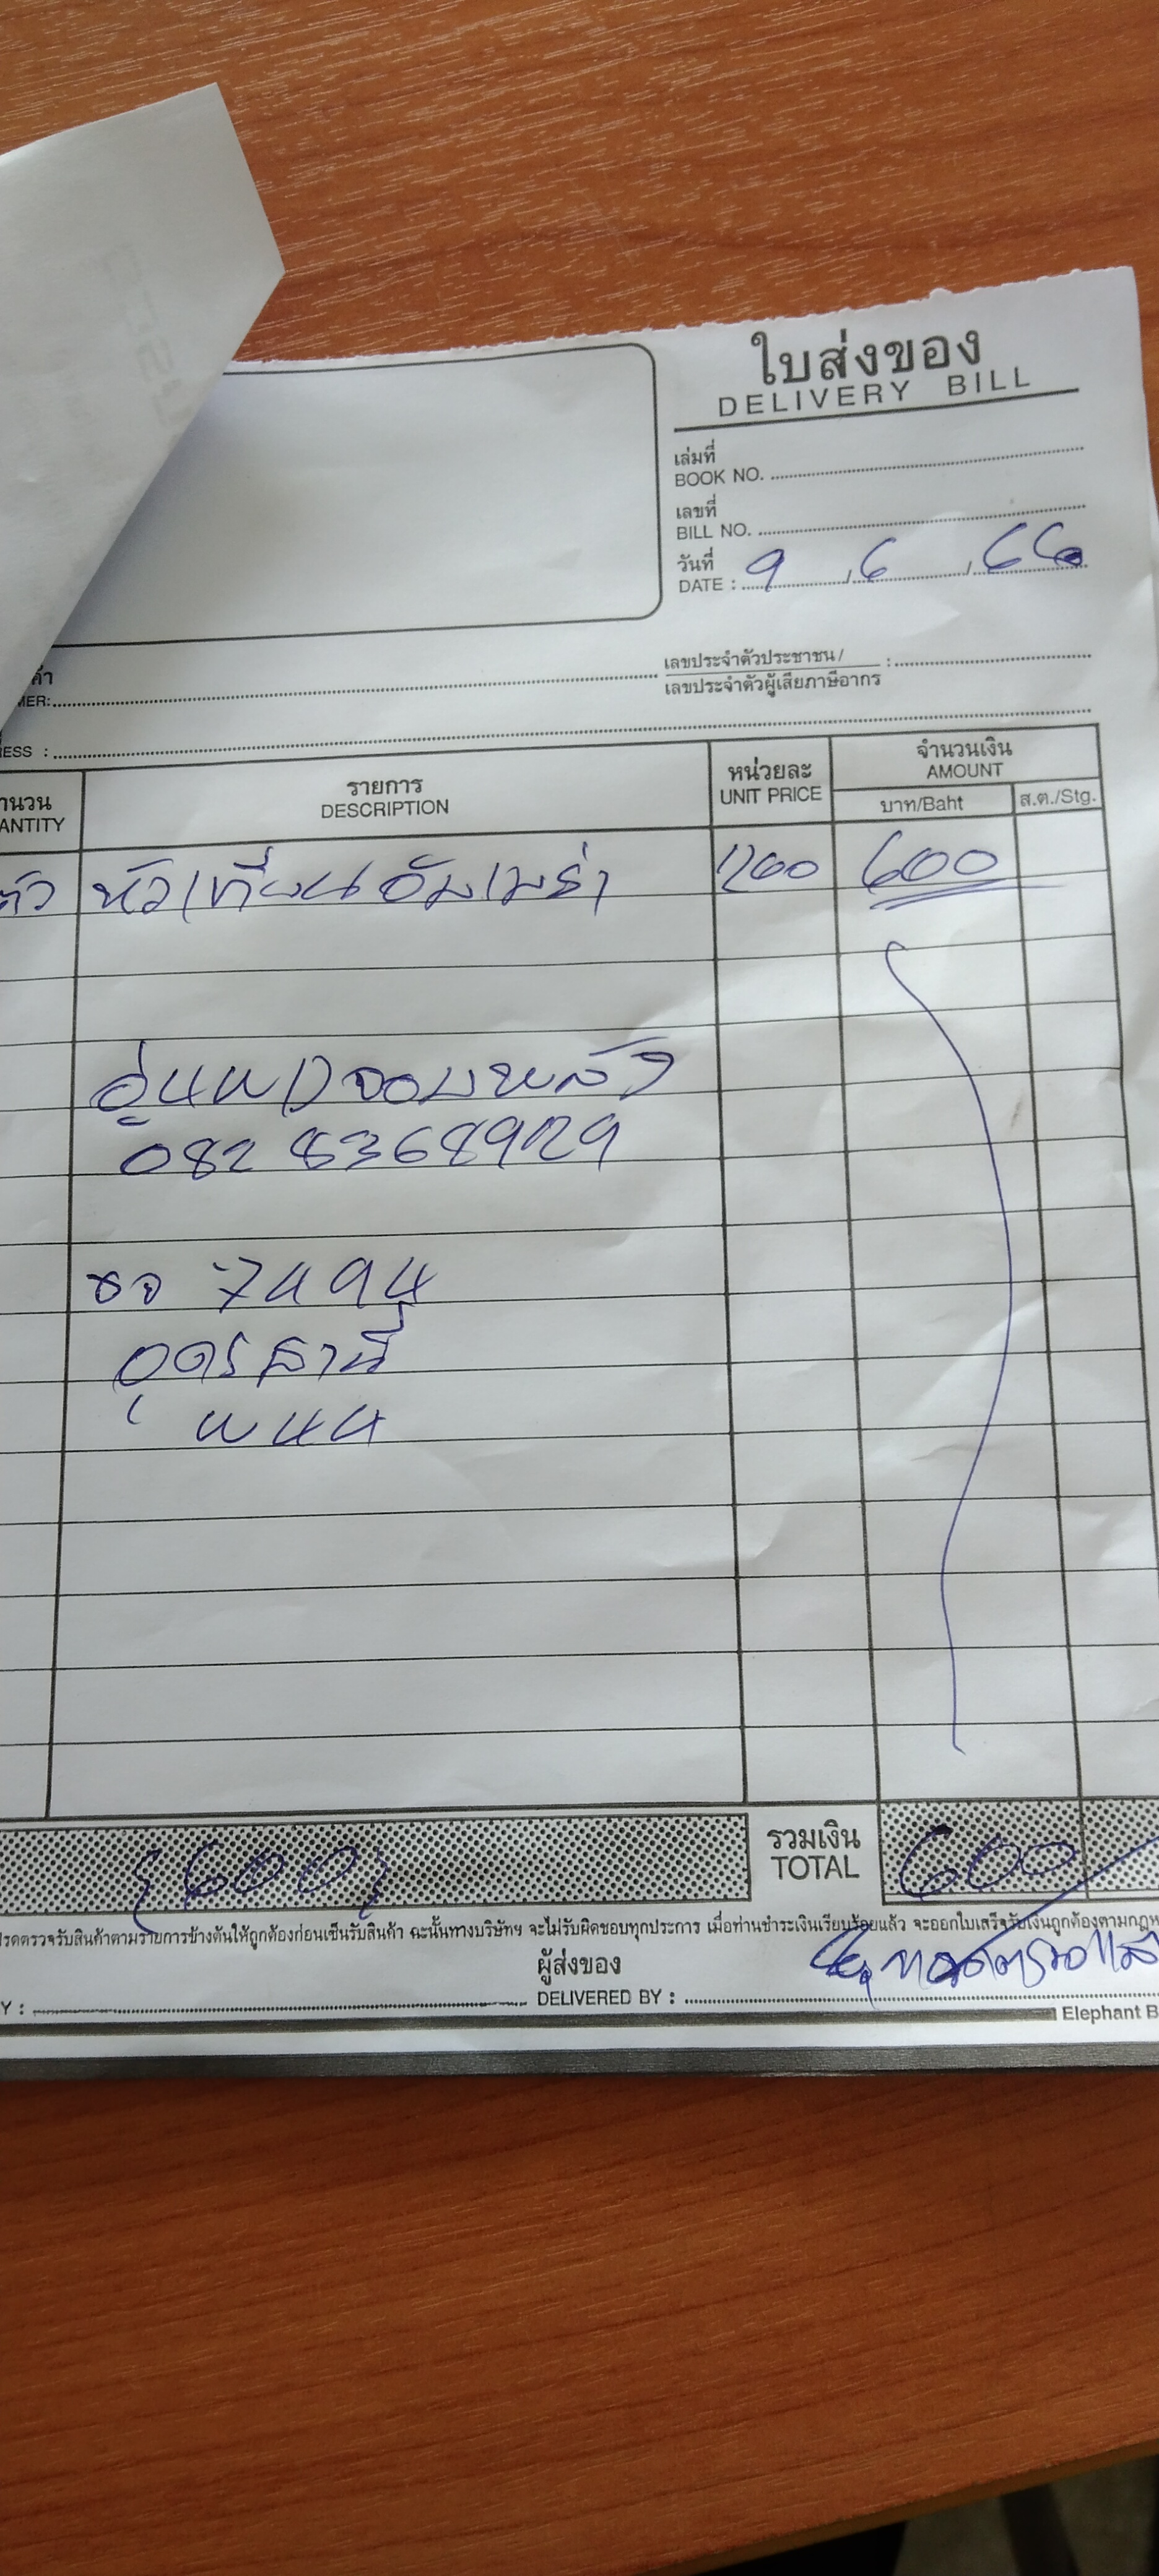 ใบส่งของ
DELIVERY BILL
เล่มที่
BOOK NO.
เลขที่
BILL NO.
วันที่
DATE : 9 / 6 / 66
ค้า
MER:
เลขประจำตัวประชาชน/
เลขประจำตัวผู้เสียภาษีอากร :
ESS :
านวน รายการ หน่วยละ จำนวนเงิน
ANTITY DESCRIPTION UNIT PRICE AMOUNT
บาท/Baht ส.ต./Stg.
ตัว หัวเทียน 600
082 8368929
7494
อุดรธานี
{600} รวมเงิน 600
TOTAL
รดตรวจรับสินค้าตามรายการข้างต้นให้ถูกต้องก่อนเซ็นรับสินค้า ฉะนั้นทางบริษัทฯ จะไม่รับผิดชอบทุกประการ เมื่อท่านชำระเงินเรียบร้อยแล้ว จะออกใบเสร็จรับเงินถูกต้องตามกฎห
ผู้ส่งของ
Y : DELIVERED BY :
Elephant B